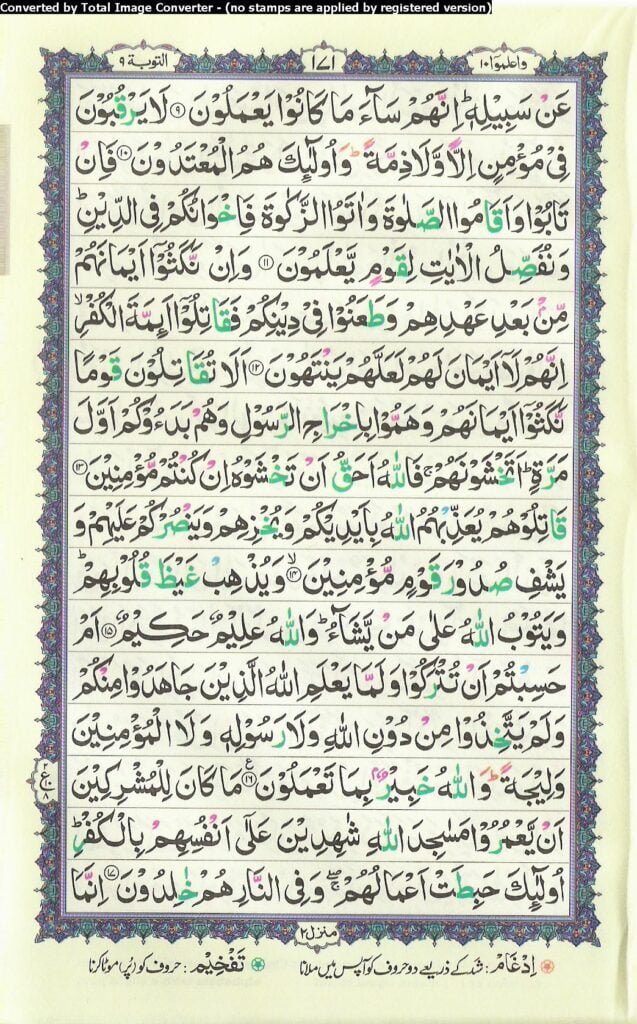 Converted by Total Image Converter - (no stamps are applied by registered version)
واعلموا ١٠
١٧١
التوبة ٩
عَنْ سَبِيْلِهٖ ؕ اِنَّهُمْ سَآءَ مَا كَانُوْا يَعْمَلُوْنَ ۝۹ لَا يَرْقُبُوْنَ
فِيْ مُؤْمِنٍ اِلًّا وَّلَا ذِمَّةً ؕ وَاُولٰٓئِكَ هُمُ الْمُعْتَدُوْنَ ۝۱۰ فَاِنْ
تَابُوْا وَاَقَامُوا الصَّلٰوةَ وَاٰتَوُا الزَّكٰوةَ فَاِخْوَانُكُمْ فِي الدِّيْنِ ؕ
وَنُفَصِّلُ الْاٰيٰتِ لِقَوْمٍ يَّعْلَمُوْنَ ۝۱۱ وَاِنْ نَّكَثُوْٓا اَيْمَانَهُمْ
مِّنْۢ بَعْدِ عَهْدِهِمْ وَطَعَنُوْا فِيْ دِيْنِكُمْ فَقَاتِلُوْٓا اَئِمَّةَ الْكُفْرِ ۙ
اِنَّهُمْ لَآ اَيْمَانَ لَهُمْ لَعَلَّهُمْ يَنْتَهُوْنَ ۝۱۲ اَلَا تُقَاتِلُوْنَ قَوْمًا
نَّكَثُوْٓا اَيْمَانَهُمْ وَهَمُّوْا بِاِخْرَاجِ الرَّسُوْلِ وَهُمْ بَدَءُوْكُمْ اَوَّلَ
مَرَّةٍ ؕ اَتَخْشَوْنَهُمْ ۚ فَاللّٰهُ اَحَقُّ اَنْ تَخْشَوْهُ اِنْ كُنْتُمْ مُّؤْمِنِيْنَ ۝۱۳
قَاتِلُوْهُمْ يُعَذِّبْهُمُ اللّٰهُ بِاَيْدِيْكُمْ وَيُخْزِهِمْ وَيَنْصُرْكُمْ عَلَيْهِمْ وَ
يَشْفِ صُدُوْرَ قَوْمٍ مُّؤْمِنِيْنَ ۙ۝۱۴ وَيُذْهِبْ غَيْظَ قُلُوْبِهِمْ ؕ
وَيَتُوْبُ اللّٰهُ عَلٰى مَنْ يَّشَآءُ ؕ وَاللّٰهُ عَلِيْمٌ حَكِيْمٌ ۝۱۵ اَمْ
حَسِبْتُمْ اَنْ تُتْرَكُوْا وَلَمَّا يَعْلَمِ اللّٰهُ الَّذِيْنَ جَاهَدُوْا مِنْكُمْ
وَلَمْ يَتَّخِذُوْا مِنْ دُوْنِ اللّٰهِ وَلَا رَسُوْلِهٖ وَلَا الْمُؤْمِنِيْنَ
وَلِيْجَةً ؕ وَاللّٰهُ خَبِيْرٌۢ بِمَا تَعْمَلُوْنَ ۝۱۶ مَا كَانَ لِلْمُشْرِكِيْنَ
اَنْ يَّعْمُرُوْا مَسٰجِدَ اللّٰهِ شٰهِدِيْنَ عَلٰٓى اَنْفُسِهِمْ بِالْكُفْرِ ؕ
اُولٰٓئِكَ حَبِطَتْ اَعْمَالُهُمْ ۖۚ وَفِي النَّارِ هُمْ خٰلِدُوْنَ ۝۱۷ اِنَّمَا
منزل ٢
اِدْغَام: شد کے ذریعے دو حروف کو آپس میں ملانا
تَفْخِيْم: حروف کو (پُر) موٹا کرنا